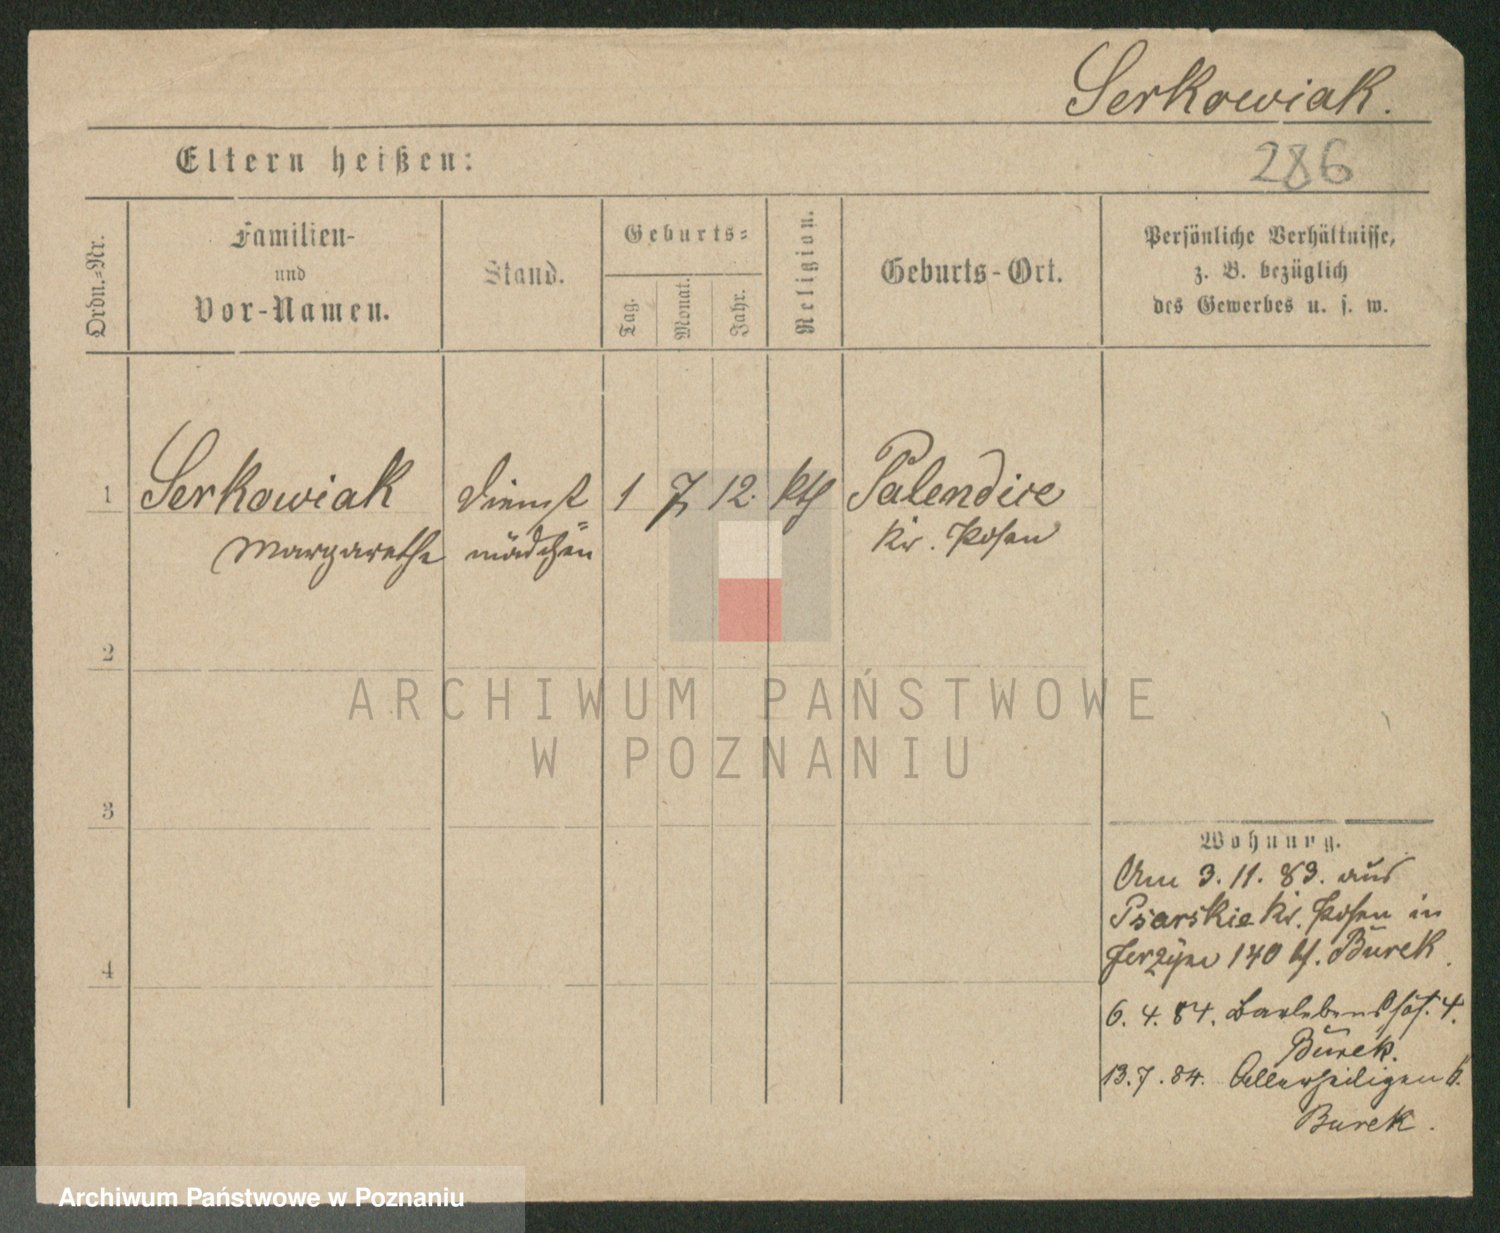 Serkowiak.
286
Eltern heißen:
Ordn.-Nr.
Familien-
und
Vor-Namen.
Stand.
Geburts-
Tag.
Monat.
Jahr.
Religion.
Geburts-Ort.
Persönliche Verhältnisse,
z. B. bezüglich
des Gewerbes u. s. w.
1 Serkowiak Dienst 1 7 12. kth Palendice
Margarethe mädchen Kr. Posen
2
3
4
ARCHIWUM PAŃSTWOWE
W POZNANIU
Wohnung.
Am 3. 11. 83. aus
Psarskie Kr. Posen in
Jerzyce 140 b. Burek.
6. 4. 84. Barlebenshof. 4.
Burek.
13. 7. 84. Allerheiligen 6.
Burek.
Archiwum Państwowe w Poznaniu